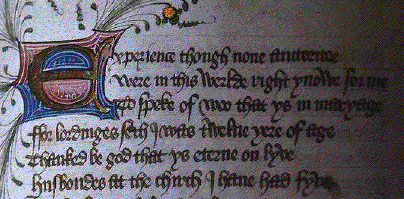 Experience though none auctorite
Were in this Worlde right ynowe for me
To speke of woo that ys in maryage
ffor lordinges seth I was twelue yere of age
Thanked be god that ys eterne on lyve
husbondes att the chirch I haue had